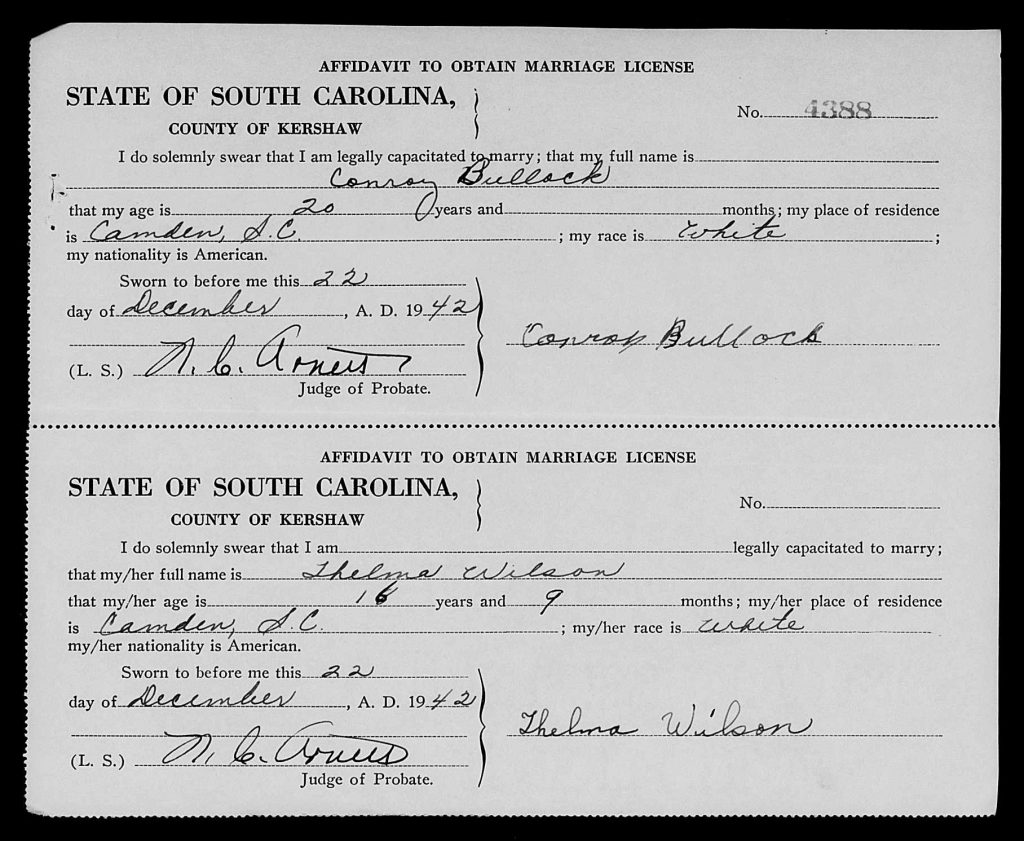 AFFIDAVIT TO OBTAIN MARRIAGE LICENSE
STATE OF SOUTH CAROLINA,
No. 4388
COUNTY OF KERSHAW
I do solemnly swear that I am legally capacitated to marry; that my full name is
Conroy Bullock
that my age is 20 years and months; my place of residence
is Camden, S.C. ; my race is White ;
my nationality is American.
Sworn to before me this 22
day of December , A. D. 1942
Conroy Bullock
(L. S.) N. C. Arnett
Judge of Probate.
AFFIDAVIT TO OBTAIN MARRIAGE LICENSE
STATE OF SOUTH CAROLINA,
No.
COUNTY OF KERSHAW
I do solemnly swear that I am legally capacitated to marry;
that my/her full name is Thelma Wilson
that my/her age is 16 years and 9 months; my/her place of residence
is Camden, S.C. ; my/her race is White
my/her nationality is American.
Sworn to before me this 22
day of December , A. D. 1942
Thelma Wilson
(L. S.) N. C. Arnett
Judge of Probate.